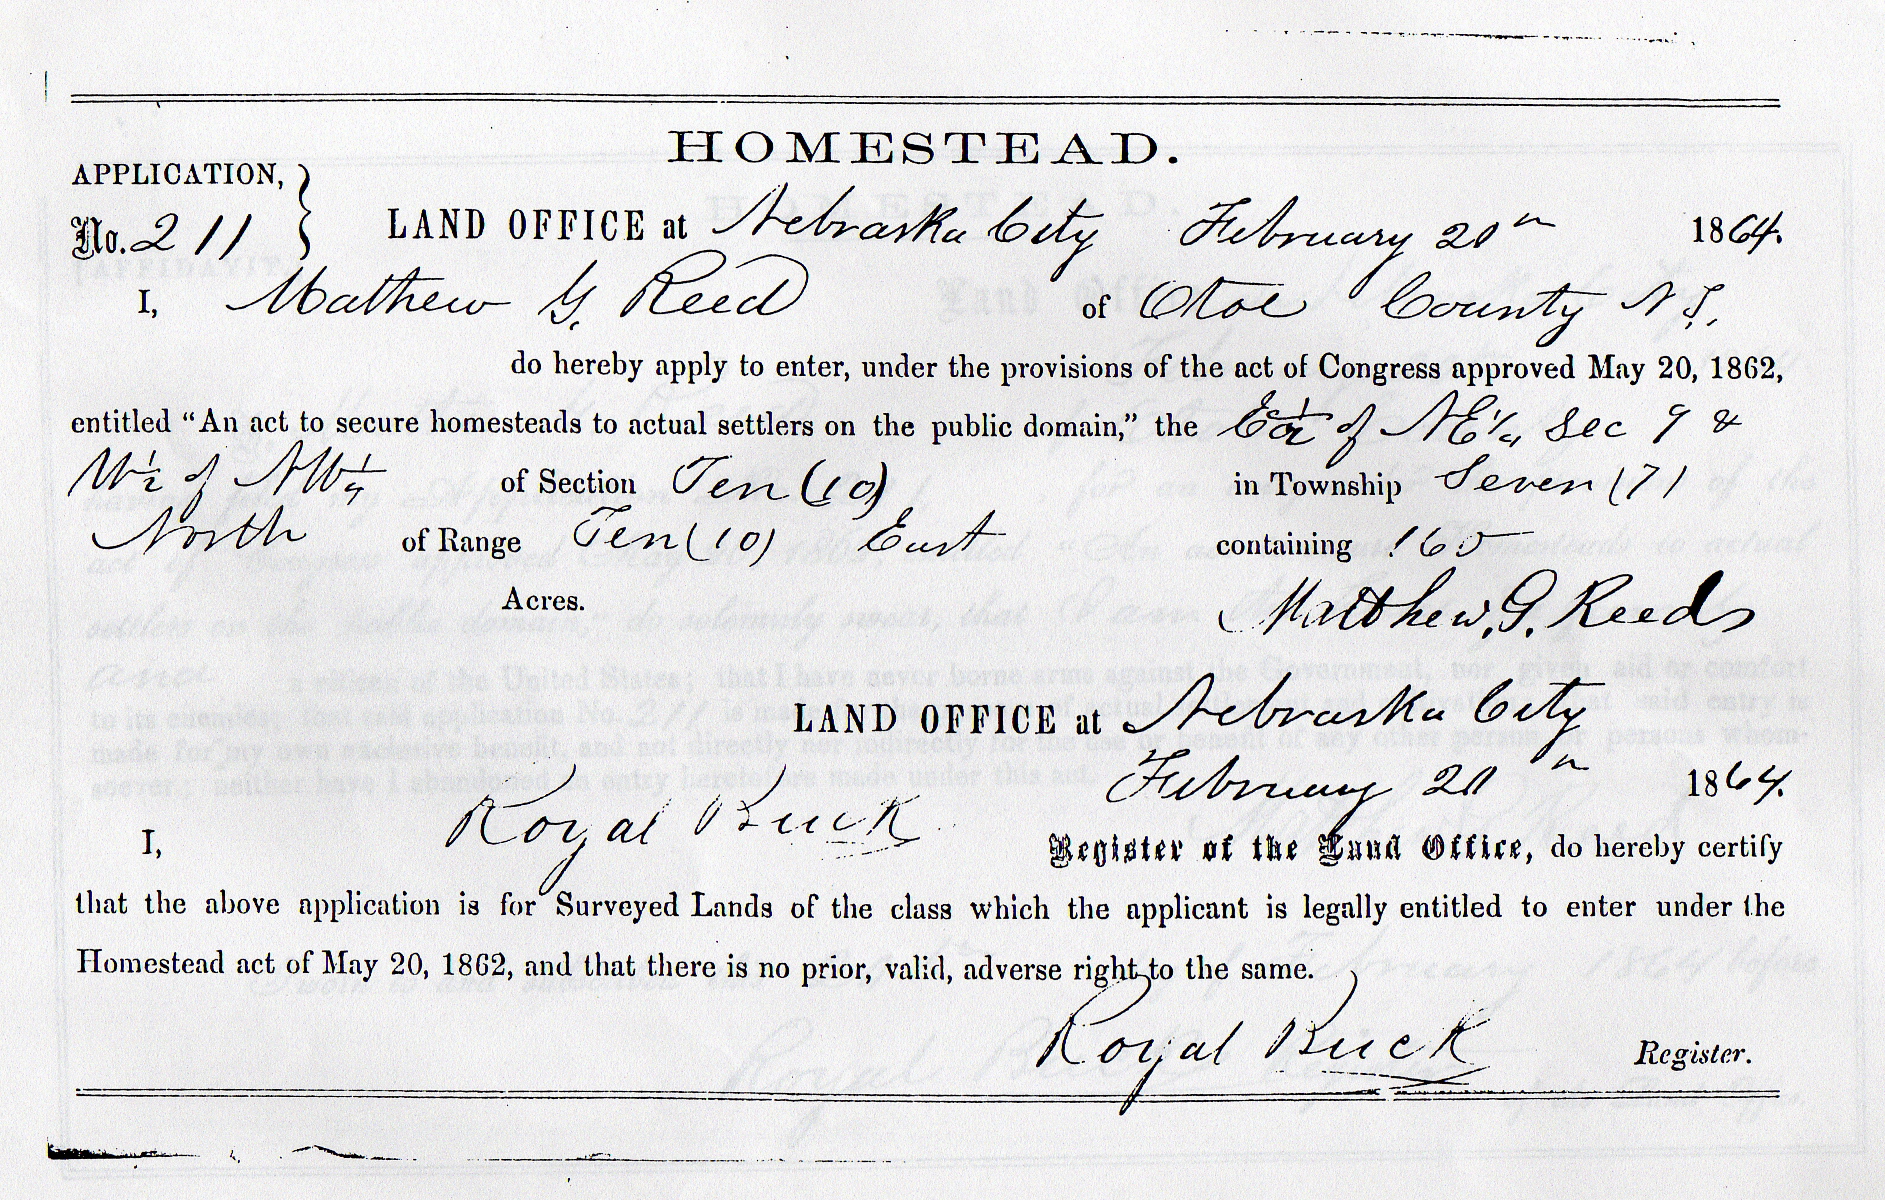 HOMESTEAD.
APPLICATION,
No. 211
LAND OFFICE at Nebraska City February 20th 1864.
I, Mathew G. Reed of Otoe County N.T.,
do hereby apply to enter, under the provisions of the act of Congress approved May 20, 1862,
entitled “An act to secure homesteads to actual settlers on the public domain,” the E 1/2 of NE 1/4 Sec 9 &
W 1/2 of NW 1/4 of Section Ten (10) in Township Seven (7)
North of Range Ten (10) East containing 160
Acres.
Matthew, G. Reeds
LAND OFFICE at Nebraska City
February 20th 1864.
I, Royal Buck Register of the Land Office, do hereby certify
that the above application is for Surveyed Lands of the class which the applicant is legally entitled to enter under the
Homestead act of May 20, 1862, and that there is no prior, valid, adverse right to the same.
Royal Buck Register.